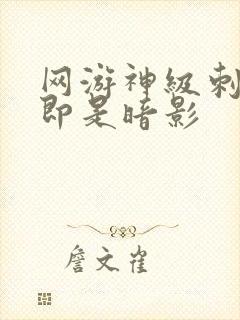 网游神级刺
即是暗影
詹文雀